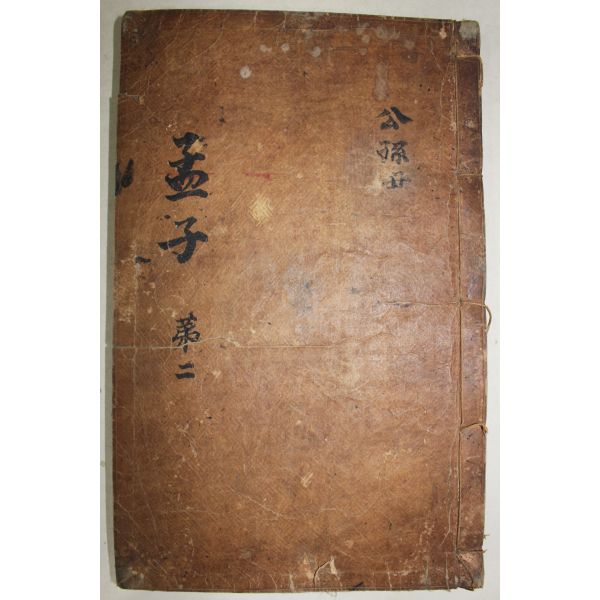 公孫丑
孟子
第二